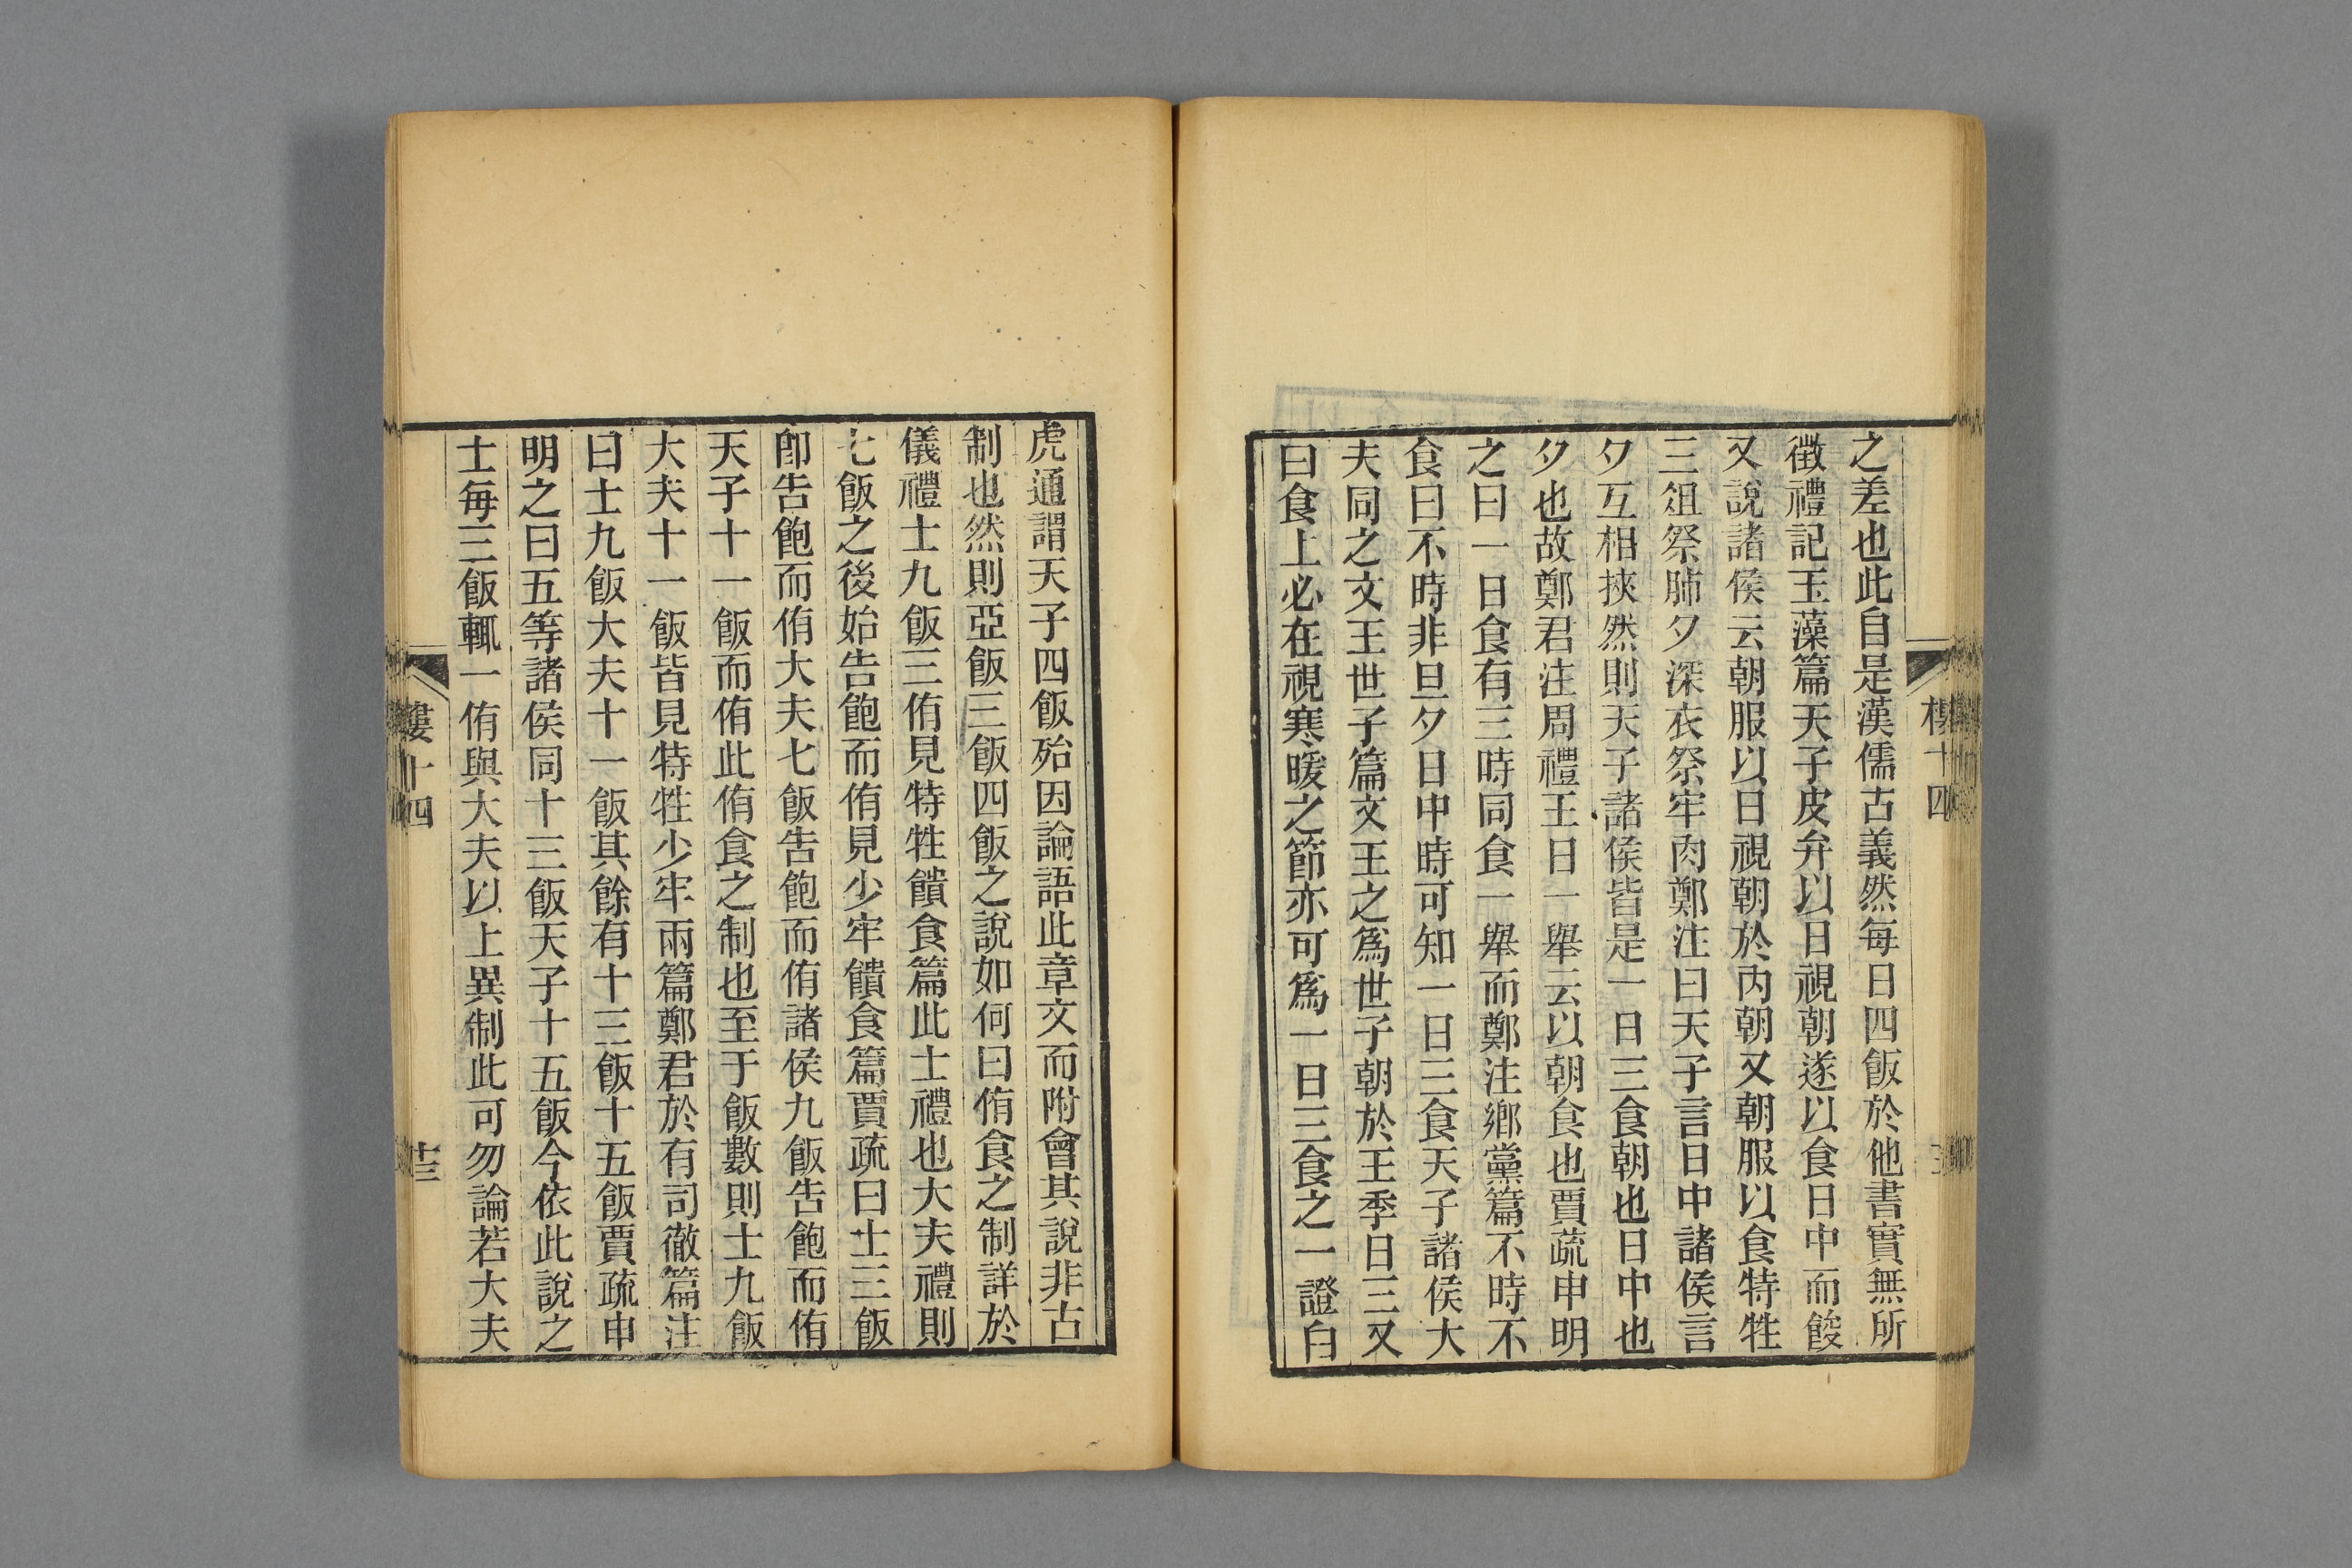 之差也此自是漢儒古義然每日四飯於他書實無所
徵禮記玉藻篇天子皮弁以日視朝遂以食日中而餕
又說諸侯云朝服以日視朝於內朝又朝服以食特牲
三俎祭肺夕深衣祭牢肉鄭注曰天子言日中諸侯言
夕互相挾然則天子諸侯皆是一日三食朝也日中也
夕也故鄭君注周禮王日一舉云以朝食也賈疏申明
之曰一日食有三時同食一舉而鄭注鄉黨篇不時不
食曰不時非旦夕日中時可知一日三食天子諸侯大
夫同之文王世子篇文王之爲世子朝於王季日三又
曰食上必在視寒暖之節亦可爲一日三食之一證白
樓十四
虎通謂天子四飯殆因論語此章文而附會其說非古
制也然則亞飯三飯四飯之說如何曰侑食之制詳於
儀禮士九飯三侑見特牲饋食篇此士禮也大夫禮則
七飯之後始告飽而侑見少牢饋食篇賈疏曰士三飯
卽告飽而侑大夫七飯告飽而侑諸侯九飯告飽而侑
天子十一飯而侑此侑食之制也至于飯數則士九飯
大夫十一飯皆見特牲少牢兩篇鄭君於有司徹篇注
曰士九飯大夫十一飯其餘有十三飯十五飯賈疏申
明之曰五等諸侯同十三飯天子十五飯今依此說之
士每三飯輒一侑與大夫以上異制此可勿論若大夫
樓十四
廿三